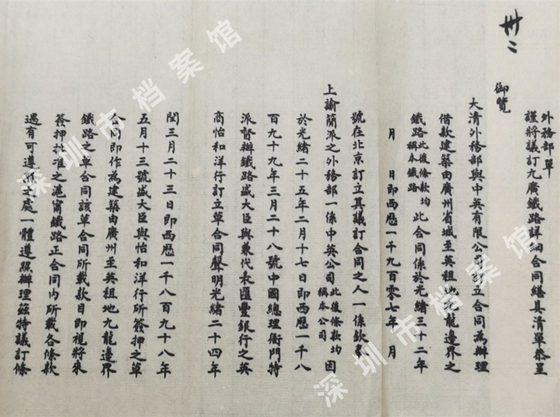 卅二
外務部單
謹將議訂九廣鐵路詳細合同繕具清單恭呈
御覽
大清外務部與中英有限公司訂立合同為辦理
借款建築由廣州省城至英租地九龍邊界之
鐵路此後條款均稱本鐵路此合同係於光緒三十二年
月 日即西歷一千九百零七年 月
號在北京訂立其議訂合同之人一係欽奉
上諭簡派之外務部一係中英公司此後條款均稱本公司因
於光緒二十五年二月十七日即西歷一千八
百九十九年三月二十八號中國總理衙門特
派督辦鐵路盛大臣與兼代表匯豐銀行之英
商怡和洋行訂立草合同聲明光緒二十四年
閏三月二十三日即西歷一千八百九十八年
五月十三號盛大臣與怡和洋行所簽押之草
合同即作為建築由廣州至英租地九龍邊界
鐵路之草合同該草合同所載款目即視將來
簽押批准之滬甯鐵路正合同內所載各條款
遇有可遵照之處一體遵照辦理茲特議訂條
深圳市档案馆
深圳市档案馆
深圳市档案馆